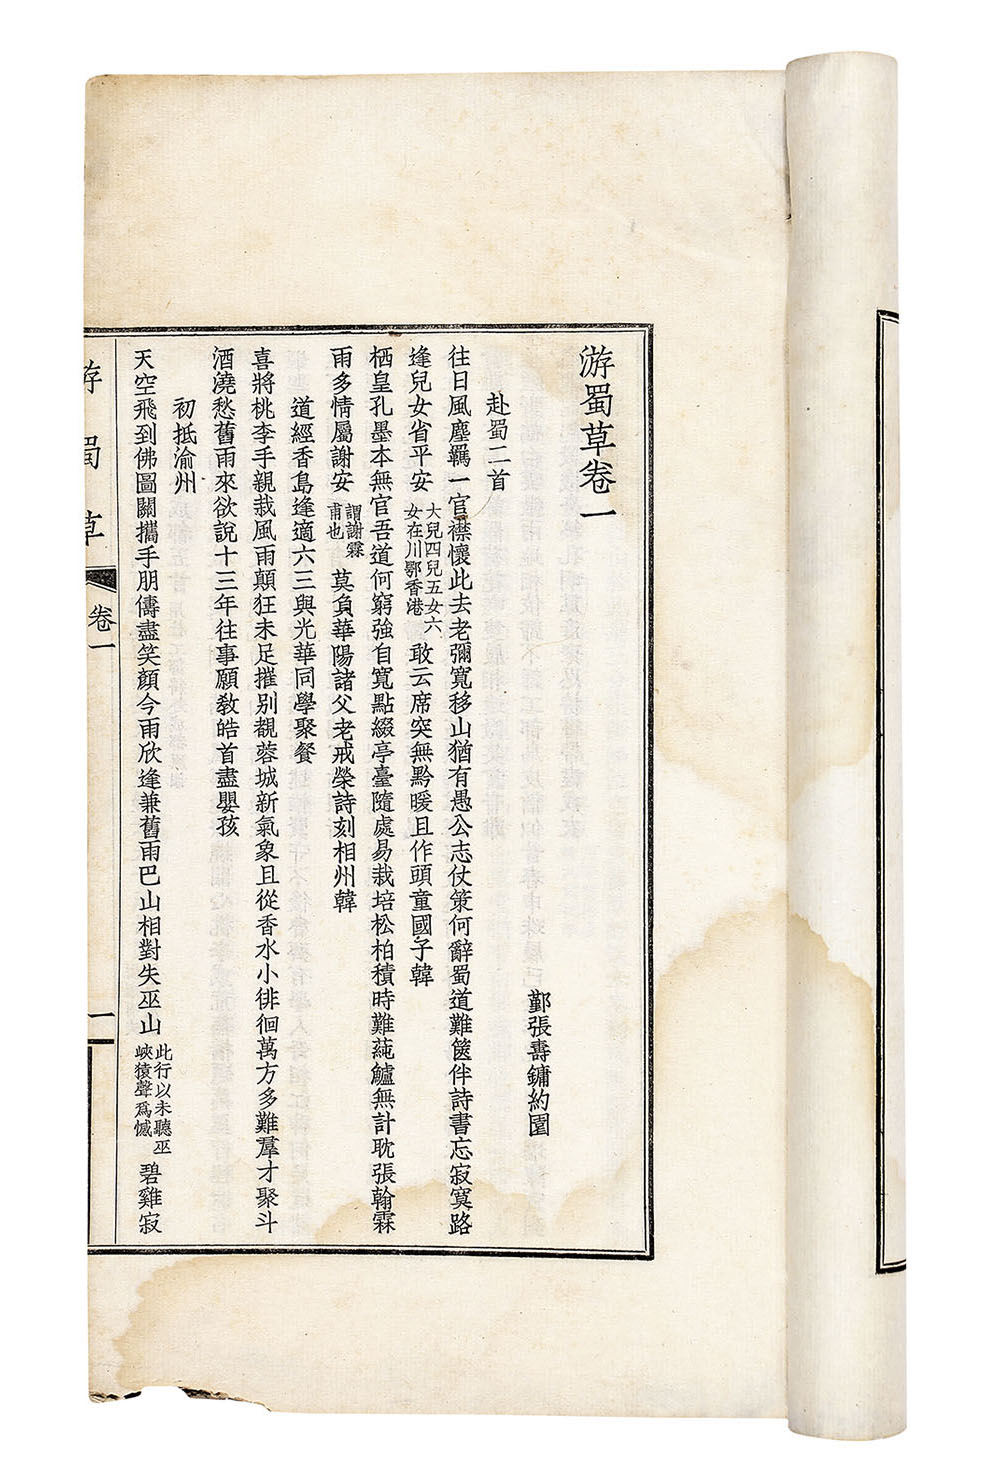 游蜀草卷一
鄞張壽鏞約園
赴蜀二首
往日風塵羈一官襟懷此去老彌寬移山猶有愚公志仗策何辭蜀道難篋伴詩書忘寂寞路
逢兒女省平安大兒四兒五女六女在川鄂香港敢云席突無黔暖且作頭童國子韓
栖皇孔墨本無官吾道何窮強自寬點綴亭臺隨處易栽培松柏積時難蓴鱸無計耽張翰霖
雨多情屬謝安謂謝霖甫也莫負華陽諸父老戒榮詩刻相州韓
道經香島逢適六三與光華同學聚餐
喜將桃李手親栽風雨顛狂未足摧別覩蓉城新氣象且從香水小徘徊萬方多難羣才聚斗
酒澆愁舊雨來欲說十三年往事願教皓首盡嬰孩
初抵渝州
天空飛到佛圖關攜手朋儔盡笑顏今雨欣逢兼舊雨巴山相對失巫山此行以未聽巫峽猿聲爲憾碧雞寂
游蜀草
卷一
一